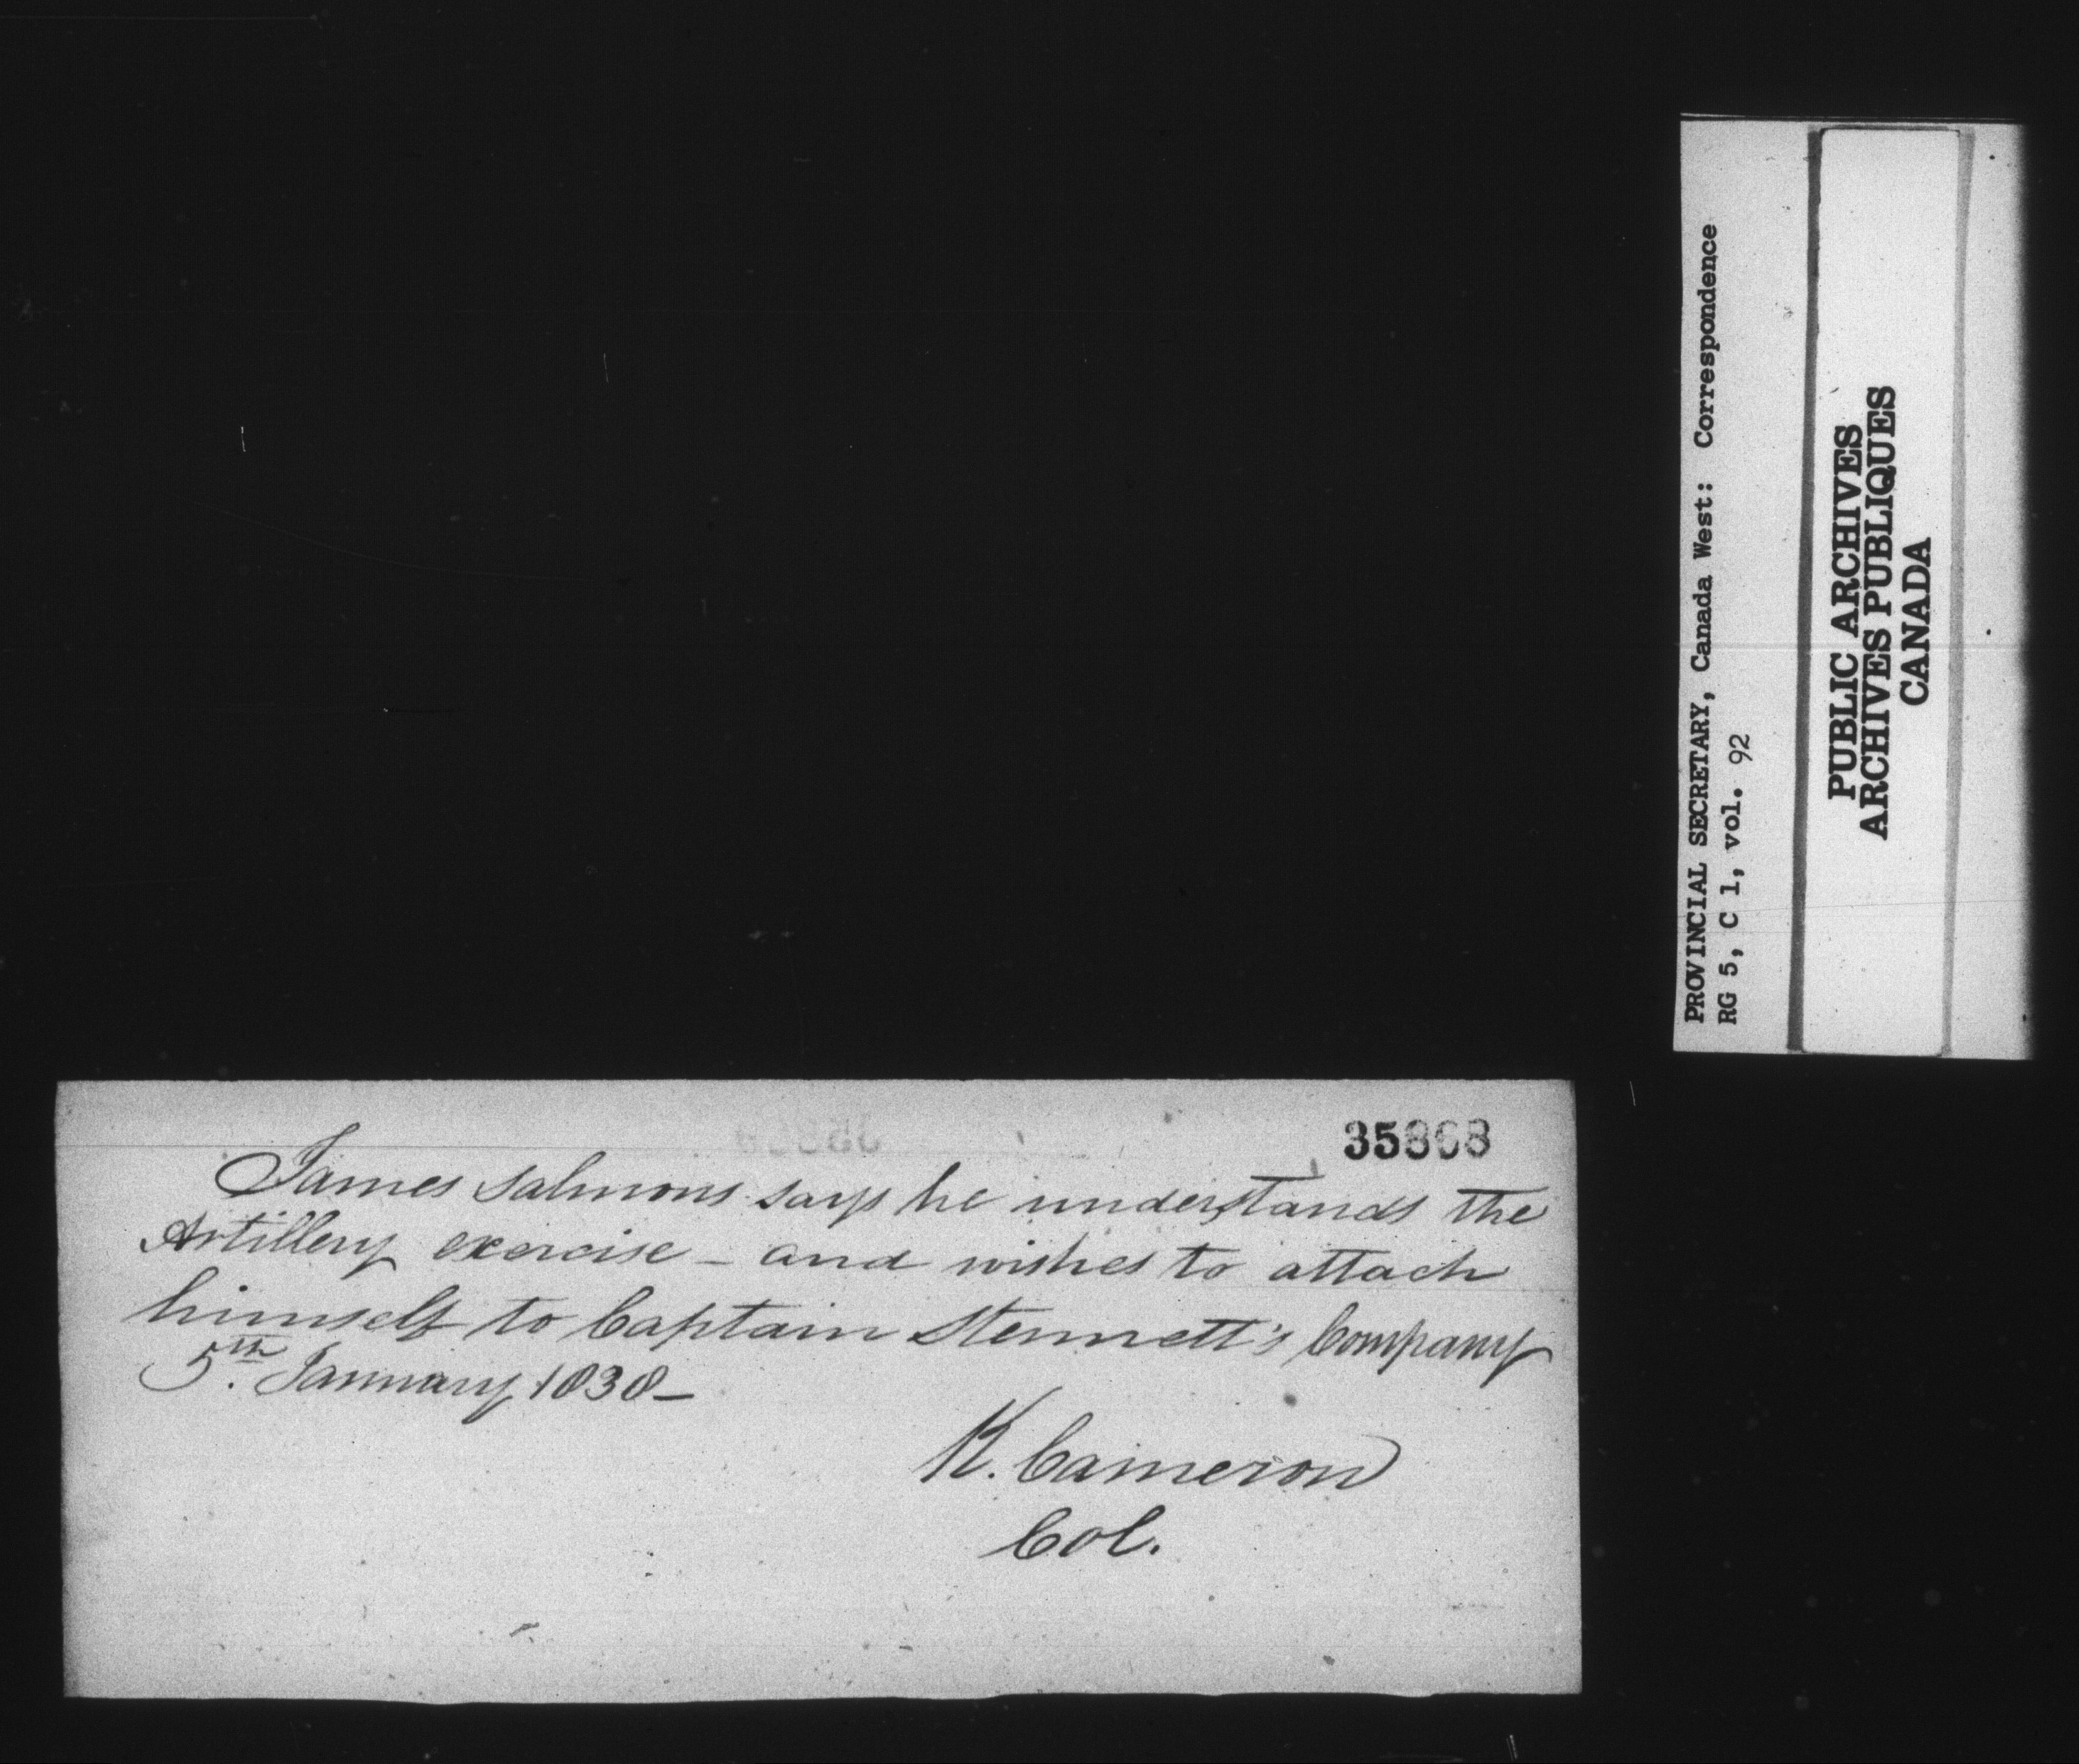 35868
James Salmons says he understands the
Artillery exercise – and wishes to attach
himself to Captain Stennett's Company
5th. January 1838–
K. Cameron
Col.
PROVINCIAL SECRETARY, Canada West: Correspondence
RG 5, C 1, vol. 92
PUBLIC ARCHIVES
ARCHIVES PUBLIQUES
CANADA